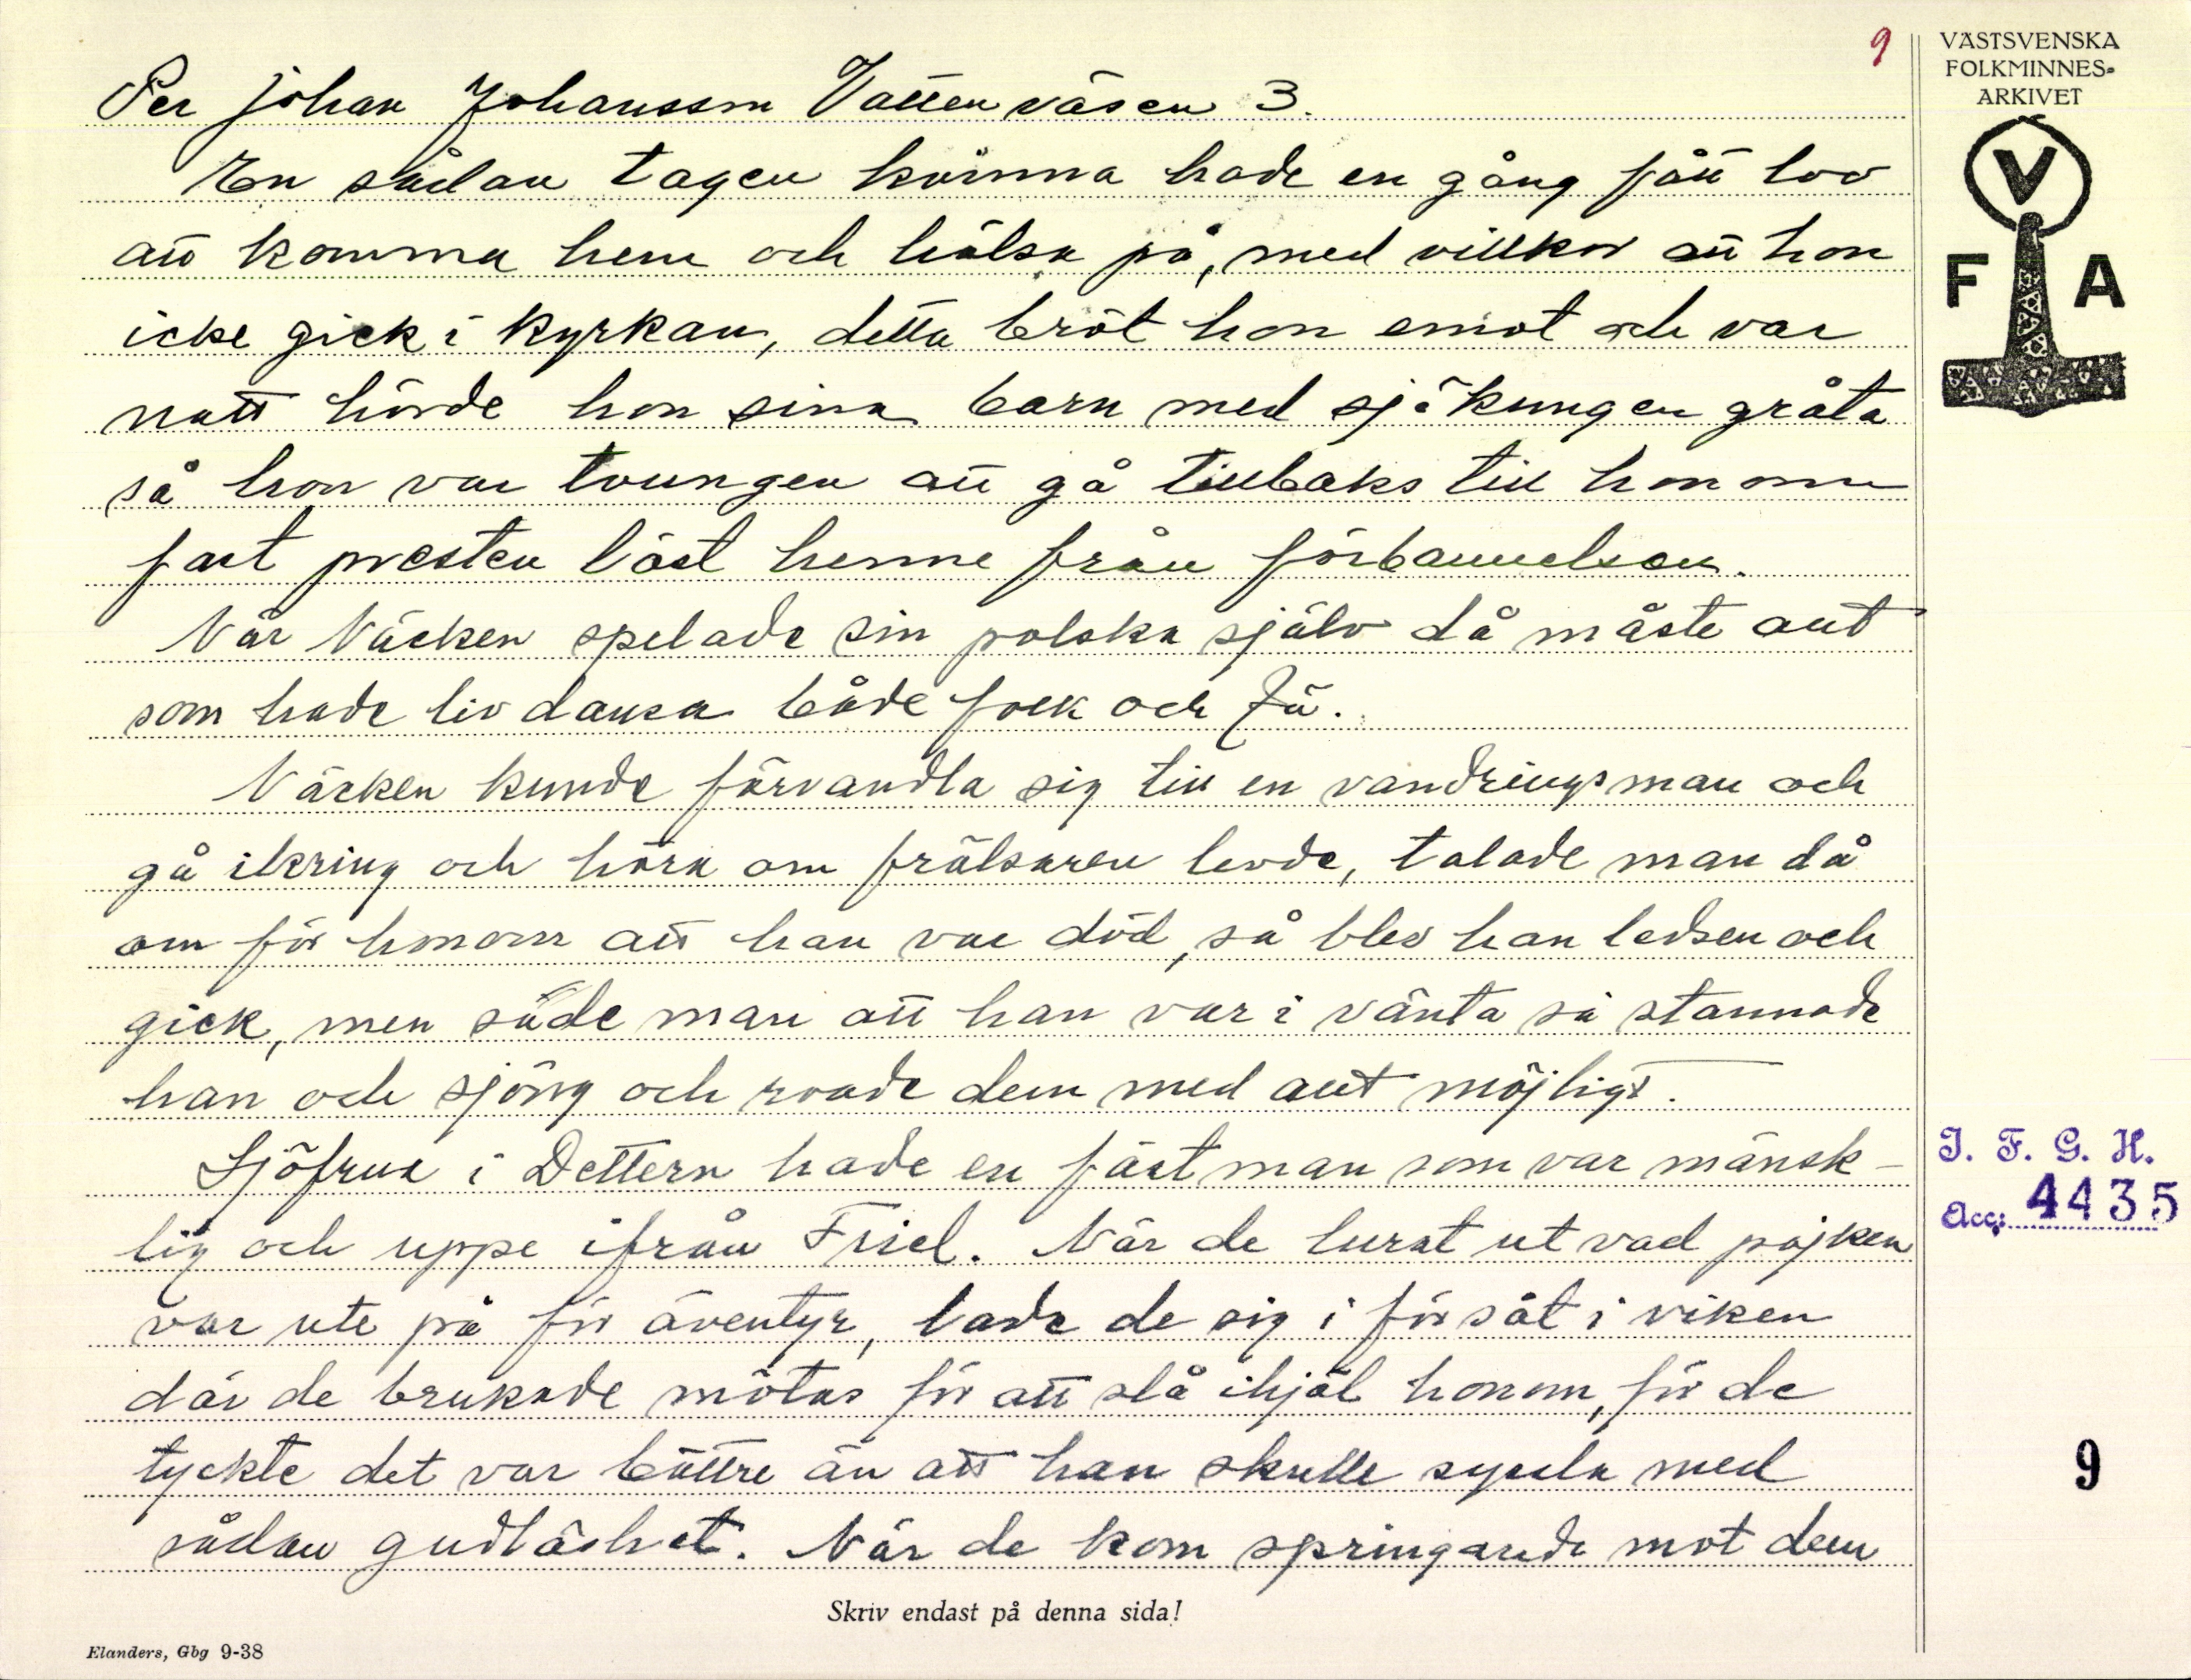 9
VÄSTSVENSKA
FOLKMINNES-
ARKIVET
V
F A
Per Johan Johansson Vattenväsen 3.
En sådan tagen kvinna hade en gång fått lov
att komma hem och hälsa på, med villkor att hon
icke gick i kyrkan, detta bröt hon emot och var
natt hörde hon sina barn med sjökungen gråta
så hon var tvungen att gå tillbaks till honom
fast presten löst henne från förbannelsen.
När Näcken spelade sin polska själv då måste allt
som hade liv dansa både folk och fä.
Näcken kunde förvandla sig till en vandringsman och
gå ikring och höra om frälsaren levde, talade man då
om för honom att han var död, så blev han ledsen och
gick, men sade man att han var i vänta så stannade
han och sjöng och roade dem med allt möjligt.
Sjöfrua i Dettern hade en fästman som var mänsk-
lig och uppe ifrån Friel. När de lurat ut vad pojken
var ute på för äventyr, lade de sig i försåt i viken
där de brukade mötas för att slå ihjäl honom, för de
tyckte det var bättre än att han skulle synda med
sådan gudlöshet. När de kom springande mot dem
I. F. G. H.
Acc: 4435
9
Skriv endast på denna sida!
Elanders, Gbg 9-38